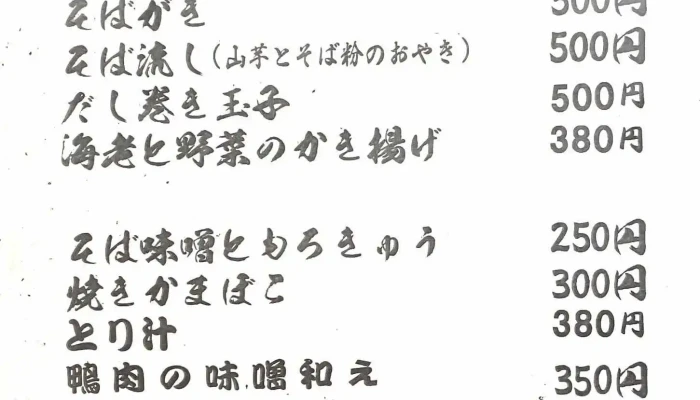 そばがき 500円
そば流し(山芋とそば粉のおやき) 500円
だし巻き玉子 500円
海老と野菜のかき揚げ 380円
そば味噌ともろきゅう 250円
焼きかまぼこ 300円
とり汁 380円
鴨肉の味噌和え 350円